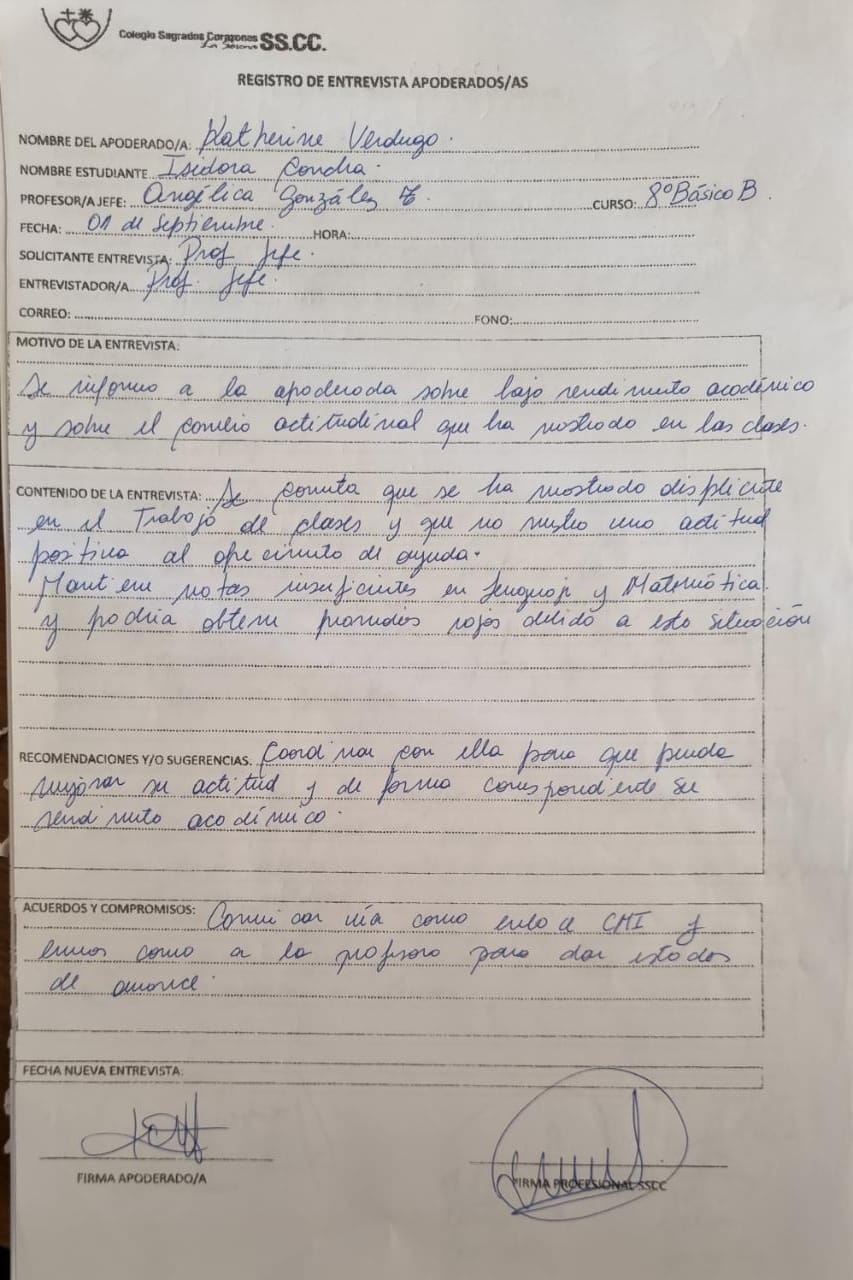 Colegio Sagrados Corazones SS.CC.
La Serena
REGISTRO DE ENTREVISTA APODERADOS/AS
NOMBRE DEL APODERADO/A: Katherine Verdugo.
NOMBRE ESTUDIANTE Isidora Concha.
PROFESOR/A JEFE: Angélica González CURSO: 8º Básico B.
FECHA: 01 de Septiembre. HORA:
SOLICITANTE ENTREVISTA: Prof Jefe.
ENTREVISTADOR/A Prof. Jefe.
CORREO: FONO:
MOTIVO DE LA ENTREVISTA:
Se informa a la apoderada sobre bajo rendimiento académico
y sobre el cambio actitudinal que ha mostrado en las clases.
CONTENIDO DE LA ENTREVISTA: Se comenta que se ha mostrado displicente
en el Trabajo de clases y que no muestra una actitud
positiva al ofrecimiento de ayuda.
Mantiene notas insuficientes en Lenguaje y Matemática.
y podría obtener promedios rojos debido a esta situación
RECOMENDACIONES Y/O SUGERENCIAS. Coordinar con ella para que pueda
mejorar su actitud y de forma correspondiente su
rendimiento académico.
ACUERDOS Y COMPROMISOS: Comunicar vía correo CMI y
correo a la profesora para dar estados
de avance.
FECHA NUEVA ENTREVISTA:
FIRMA APODERADO/A
FIRMA PROFESIONAL SSCC